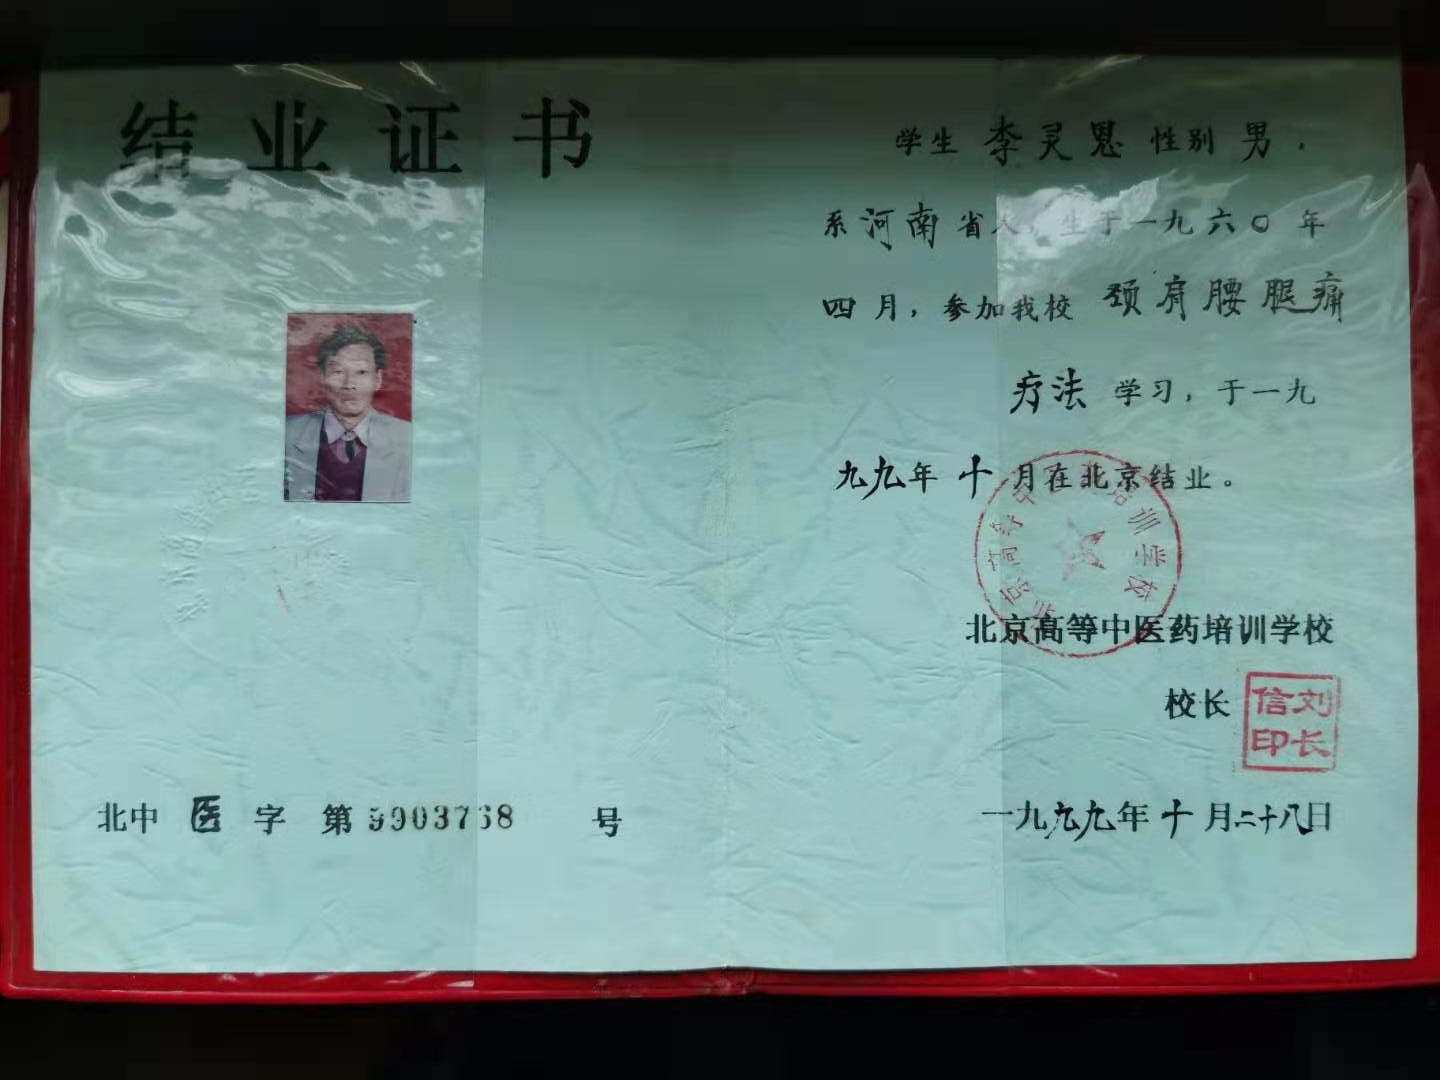 结业证书
北中 医 字 第9903768 号
学生 李灵恩 性别 男,
系河南省人,生于一九六〇年
四月,参加我校 颈肩腰腿痛
疗法 学习,于一九
九九年 十 月在北京结业。
北京高等中医药培训学校
北京高等中医药培训学校
校长
刘长信印
一九九九年 十 月二十八日